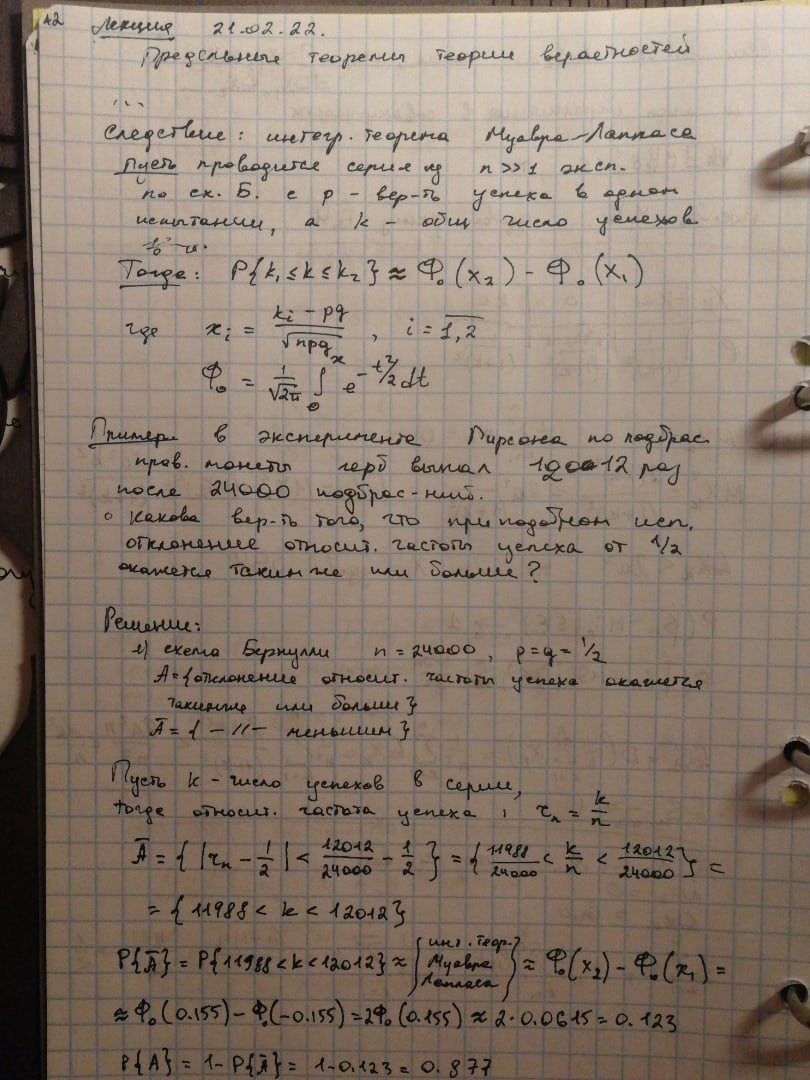 42 Лекция 21.02.22.
Предельные теоремы теории вероятностей
...
Следствие: интегр. теорема Муавра-Лапласа
Пусть проводится серия из n >> 1 эксп.
по сх. Б. с p - вер-ть успеха в одном
испытании, а k - общ число успехов
Тогда: P{k₁ ≤ k ≤ k₂} ≈ Φ₀(x₂) - Φ₀(x₁)
где xᵢ = (kᵢ - pq)/√(npq), i = 1,2
Φ₀ = 1/√(2π) ∫₀ˣ e^(-t²/2) dt
Пример в эксперименте Пирсона по подбрас.
прав. монеты герб выпал 12012 раз
после 24000 подбрас-ний.
Какова вер-ть того, что при подобном исп.
отклонение относит. частоты успеха от 1/2
окажется таким же или больше?
Решение:
1) схема Бернулли n = 24000, p = q = 1/2
A = {отклонение относит. частоты успеха окажется
таким же или больше}
A̅ = { -//- меньшим}
Пусть k - число успехов в серии,
тогда относит. частота успеха: rₙ = k/n
A̅ = { |rₙ - 1/2| < 12012/24000 - 1/2 } = { 11988/24000 < k/n < 12012/24000 } =
= { 11988 < k < 12012 }
P{A̅} = P{11988 < k < 12012} ≈ { инт. теор. Муавра Лапласа } ≈ Φ₀(x₂) - Φ₀(x₁) =
≈ Φ₀(0.155) - Φ₀(-0.155) = 2Φ₀(0.155) ≈ 2·0.0615 = 0.123
P{A} = 1 - P{A̅} = 1 - 0.123 = 0.877